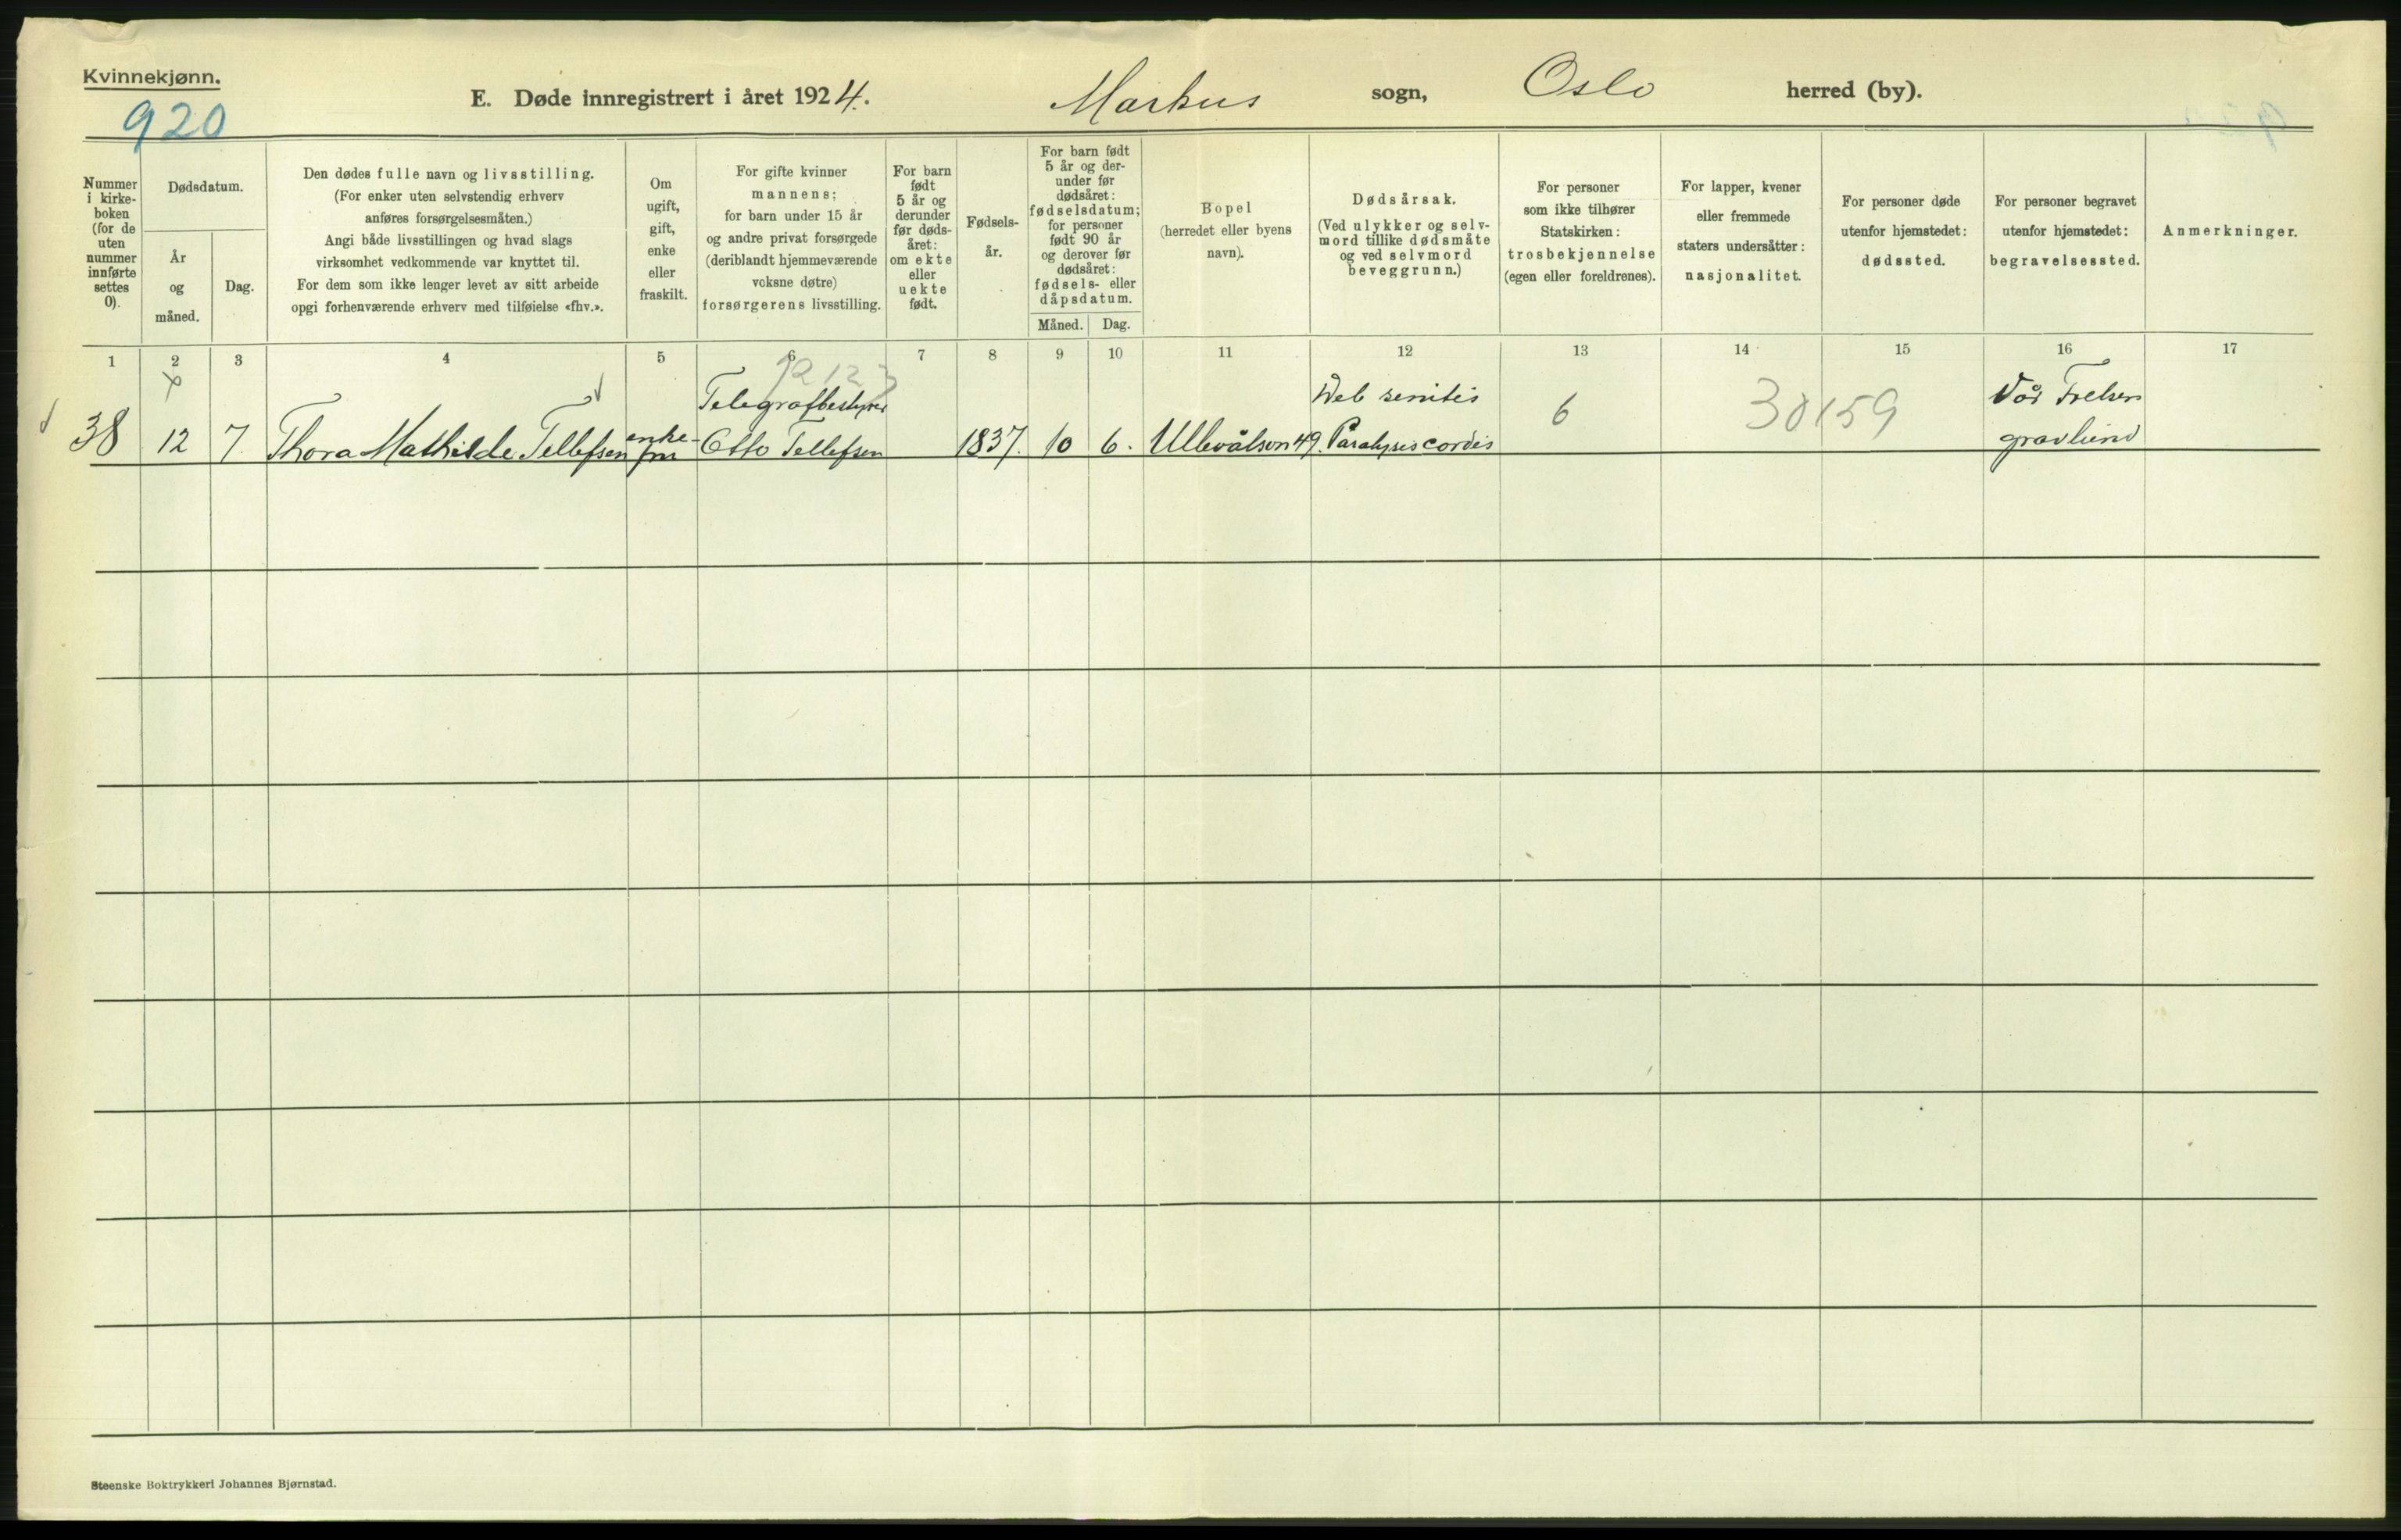 Kvinnekjønn.
920
E. Døde innregistrert i året 1924. Markus sogn, Oslo herred (by).
Nummer
i kirke-
boken
(for de
uten
nummer
innførte
settes
0).
Dødsdatum.
År
og
måned.
Dag.
Den dødes fulle navn og livsstilling.
(For enker uten selvstendig erhverv
anføres forsørgelsesmåten.)
Angi både livsstillingen og hvad slags
virksomhet vedkommende var knyttet til.
For dem som ikke lenger levet av sitt arbeide
opgi forhenværende erhverv med tilføielse «fhv.».
Om
ugift,
gift,
enke
eller
fraskilt.
For gifte kvinner
mannens;
for barn under 15 år
og andre privat forsørgede
(deriblandt hjemmeværende
voksne døtre)
forsørgerens livsstilling.
For barn
født
5 år og
derunder
før døds-
året:
om ekte
eller
uekte
født.
Fødsels-
år.
For barn født
5 år og der-
under før
dødsåret:
fødselsdatum;
for personer
født 90 år
og derover før
dødsåret:
fødsels- eller
dåpsdatum.
Måned. Dag.
Bopel
(herredet eller byens
navn).
Dødsårsak.
(Ved ulykker og selv-
mord tillike dødsmåte
og ved selvmord
beveggrunn.)
For personer
som ikke tilhører
Statskirken:
trosbekjennelse
(egen eller foreldrenes).
For lapper, kvener
eller fremmede
staters undersåtter:
nasjonalitet.
For personer døde
utenfor hjemstedet:
dødssted.
For personer begravet
utenfor hjemstedet:
begravelsessted.
Anmerkninger.
1 2 3 4 5 6 7 8 9 10 11 12 13 14 15 16 17
38 12 7. Thora Mathilde Tellefsen
enke-
fru
Telegrafbestyrer
Otto Tellefsen
1837. 10 6. Ullevålsvn 49.
Deb senitis
Paralysis cordis
6
30159
Vår Frelsers
gravlund
Steenske Boktrykkeri Johannes Bjørnstad.